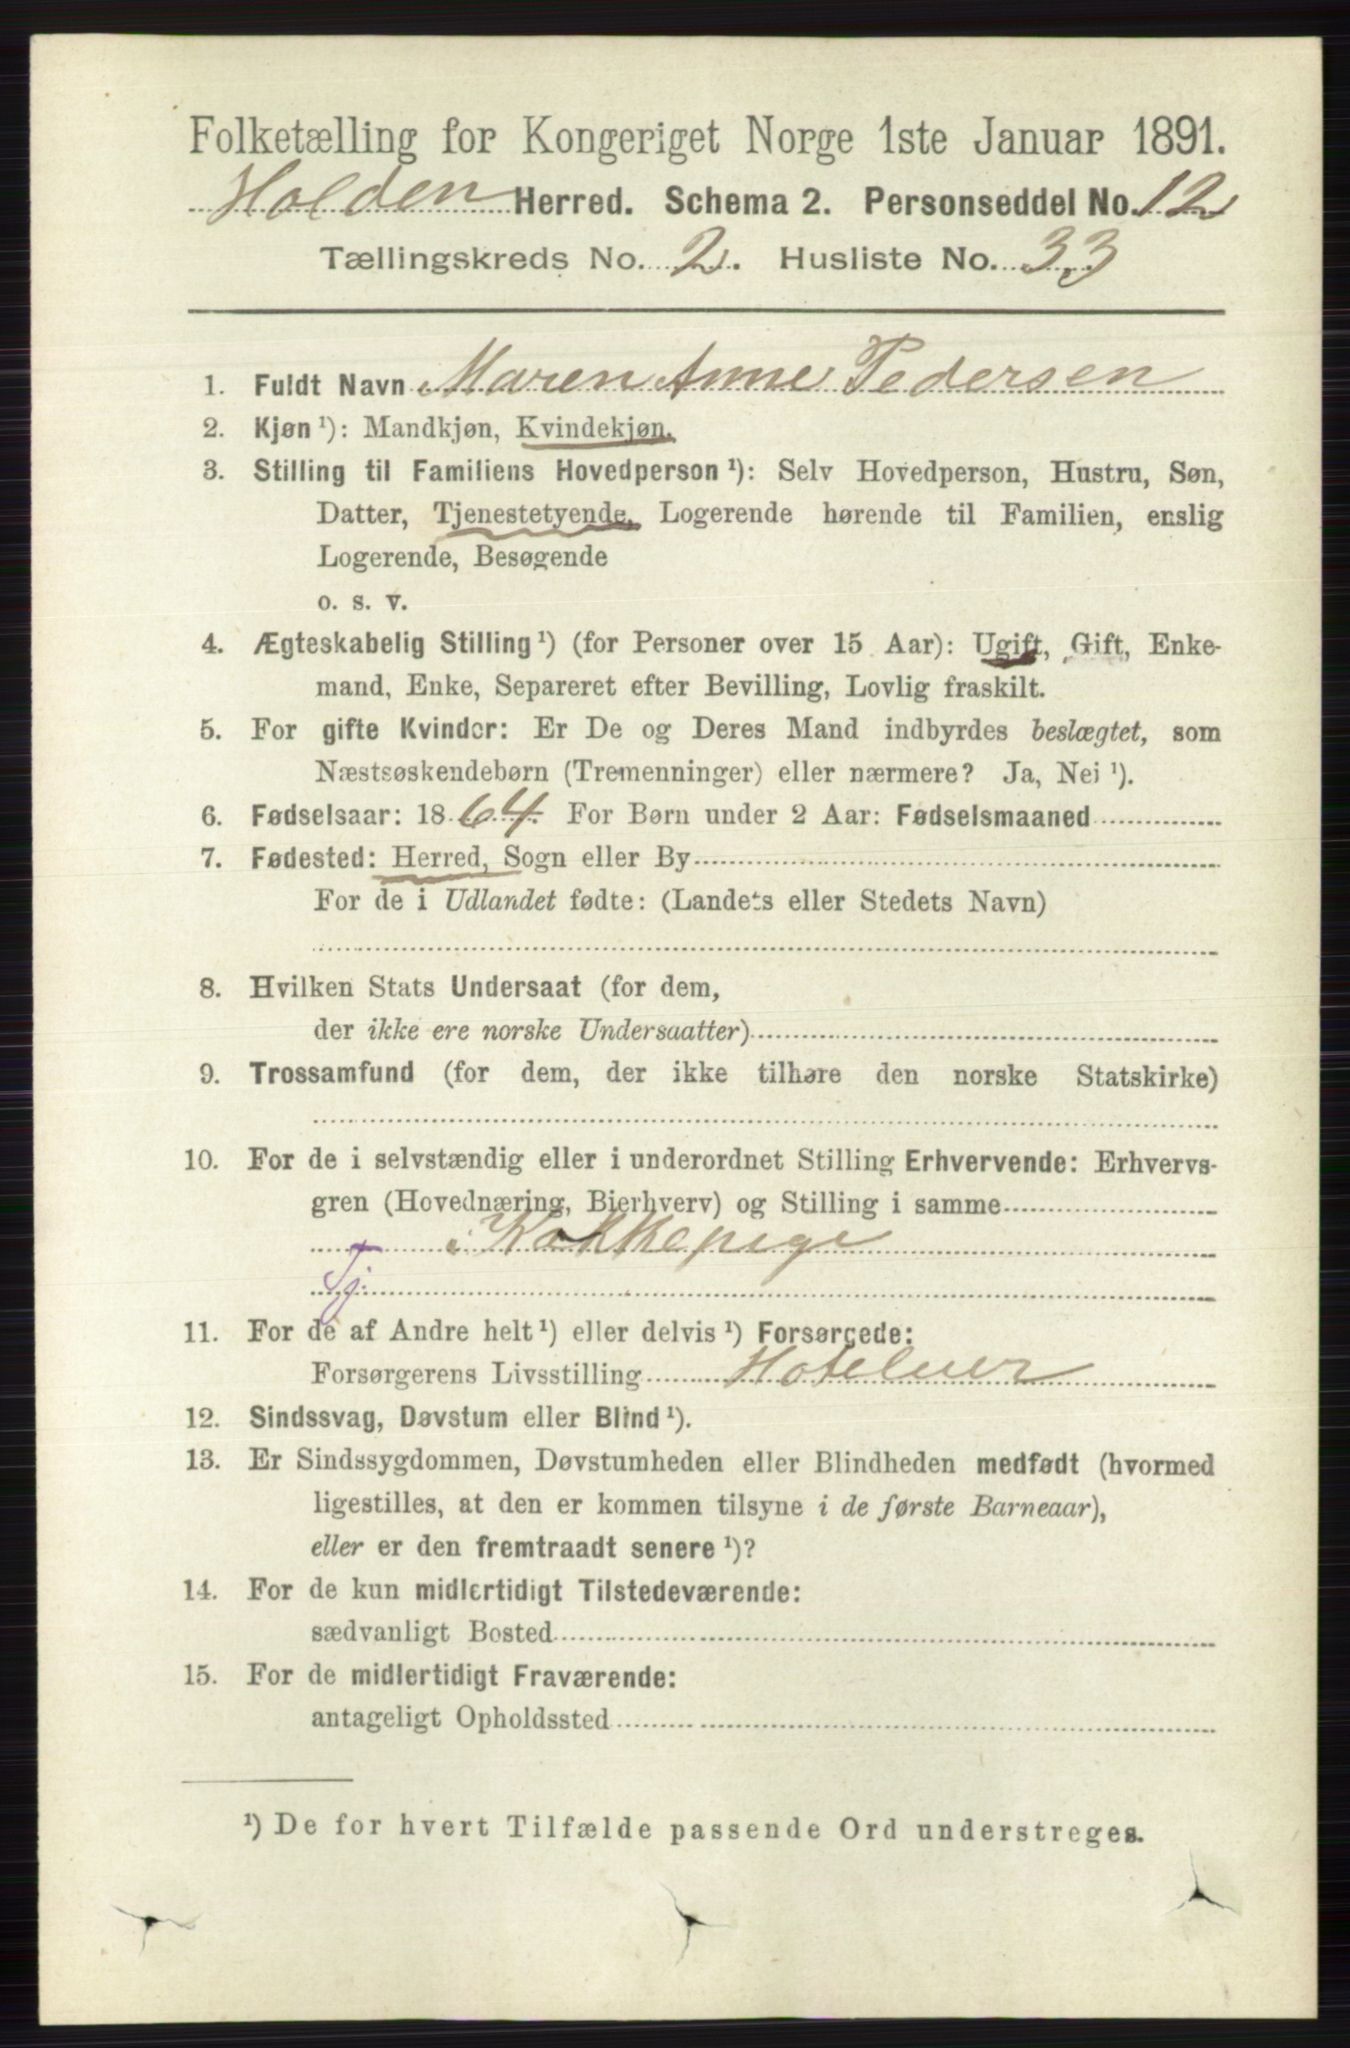 Folketælling for Kongeriget Norge 1ste Januar 1891.
Holden Herred. Schema 2. Personseddel No. 12
Tællingskreds No. 2. Husliste No. 33
1. Fuldt Navn Maren Anne Pedersen
2. Kjøn ¹): Mandkjøn, Kvindekjøn.
3. Stilling til Familiens Hovedperson ¹): Selv Hovedperson, Hustru, Søn,
Datter, Tjenestetyende, Logerende hørende til Familien, enslig
Logerende, Besøgende
o. s. v.
4. Ægteskabelig Stilling ¹) (for Personer over 15 Aar): Ugift, Gift, Enke-
mand, Enke, Separeret efter Bevilling, Lovlig fraskilt.
5. For gifte Kvinder: Er De og Deres Mand indbyrdes beslægtet, som
Næstsøskendebørn (Tremenninger) eller nærmere? Ja, Nei ¹).
6. Fødselsaar: 1864. For Børn under 2 Aar: Fødselsmaaned
7. Fødested: Herred, Sogn eller By
For de i Udlandet fødte: (Landets eller Stedets Navn)
8. Hvilken Stats Undersaat (for dem,
der ikke ere norske Undersaatter)
9. Trossamfund (for dem, der ikke tilhøre den norske Statskirke)
10. For de i selvstændig eller i underordnet Stilling Erhvervende: Erhvervs-
gren (Hovednæring, Bierhverv) og Stilling i samme
Kokkepige
Tj.
11. For de af Andre helt ¹) eller delvis ¹) Forsørgede:
Forsørgerens Livsstilling Hoteleier
12. Sindssvag, Døvstum eller Blind ¹).
13. Er Sindssygdommen, Døvstumheden eller Blindheden medfødt (hvormed
ligestilles, at den er kommen tilsyne i de første Barneaar),
eller er den fremtraadt senere ¹)?
14. For de kun midlertidigt Tilstedeværende:
sædvanligt Bosted
15. For de midlertidigt Fraværende:
antageligt Opholdssted
¹) De for hvert Tilfælde passende Ord understreges.